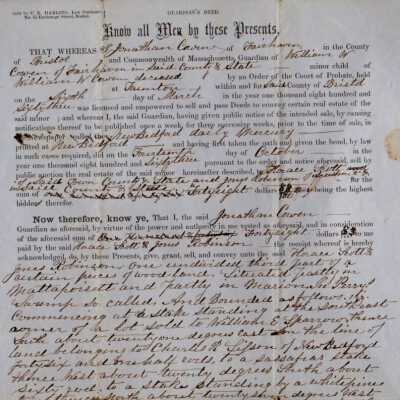 GUARDIAN'S DEED.
Know all Men by these Presents,
THAT WHEREAS I Jonathan Cowen of Fairhaven in the County
of Bristol and Commonwealth of Massachusetts, Guardian of William W
Cowen of Fairhaven in said County & State minor child of
William Cowen deceased by an Order of the Court of Probate, held
at Taunton within and for said County of Bristol
on the Sixth day of March in the year one thousand eight hundred and
Sixty three was licensed and empowered to sell and pass Deeds to convey certain real estate of the
said minor ; and whereas I, the said Guardian, having given public notice of the intended sale, by causing
notifications thereof to be published once a week, for three successive weeks, prior to the time of sale, in
the newspaper called the New Bedford daily Mercury
printed at New Bedford and having first taken the oath and given the bond, by law
in such cases required, did on the day of October
year one thousand eight hundred and Sixty three pursuant to the order and notice aforesaid, sell by
public auction the real estate of the said minor hereinafter described, to Horace
of said County & State and Jones Robinson of
in said County & State for the
sum of forty eight
bidder therefor.
Now therefore, know ye, That I, the said Jonathan Cowen
Guardian as aforesaid, by virtue of the power and authority in me vested as aforesaid, and in consideration
of the aforesaid sum of One Hundred Forty eight to me
paid by the said Horace & Jones Robinson the receipt whereof is hereby
acknowledged, do, by these Presents, give, grant, sell, and convey unto the said Horace &
Jones Robinson, one undivided third part of a
certain piece of woodland Situated partly in
Mattapoisett and partly in Marion in
Swamp So called. And Bounded as follows, viz
Commencing at a Stake standing at the South East
corner of a lot sold to William E Sparrow thence
South about twenty one degrees East in the line of
land belonging to Charles R of New Bedford
forty six and one half rods, to a sassafras Stake
thence West about twenty degrees South about
Sixty rods to a stake standing by a white pine
thence North about twenty degrees West